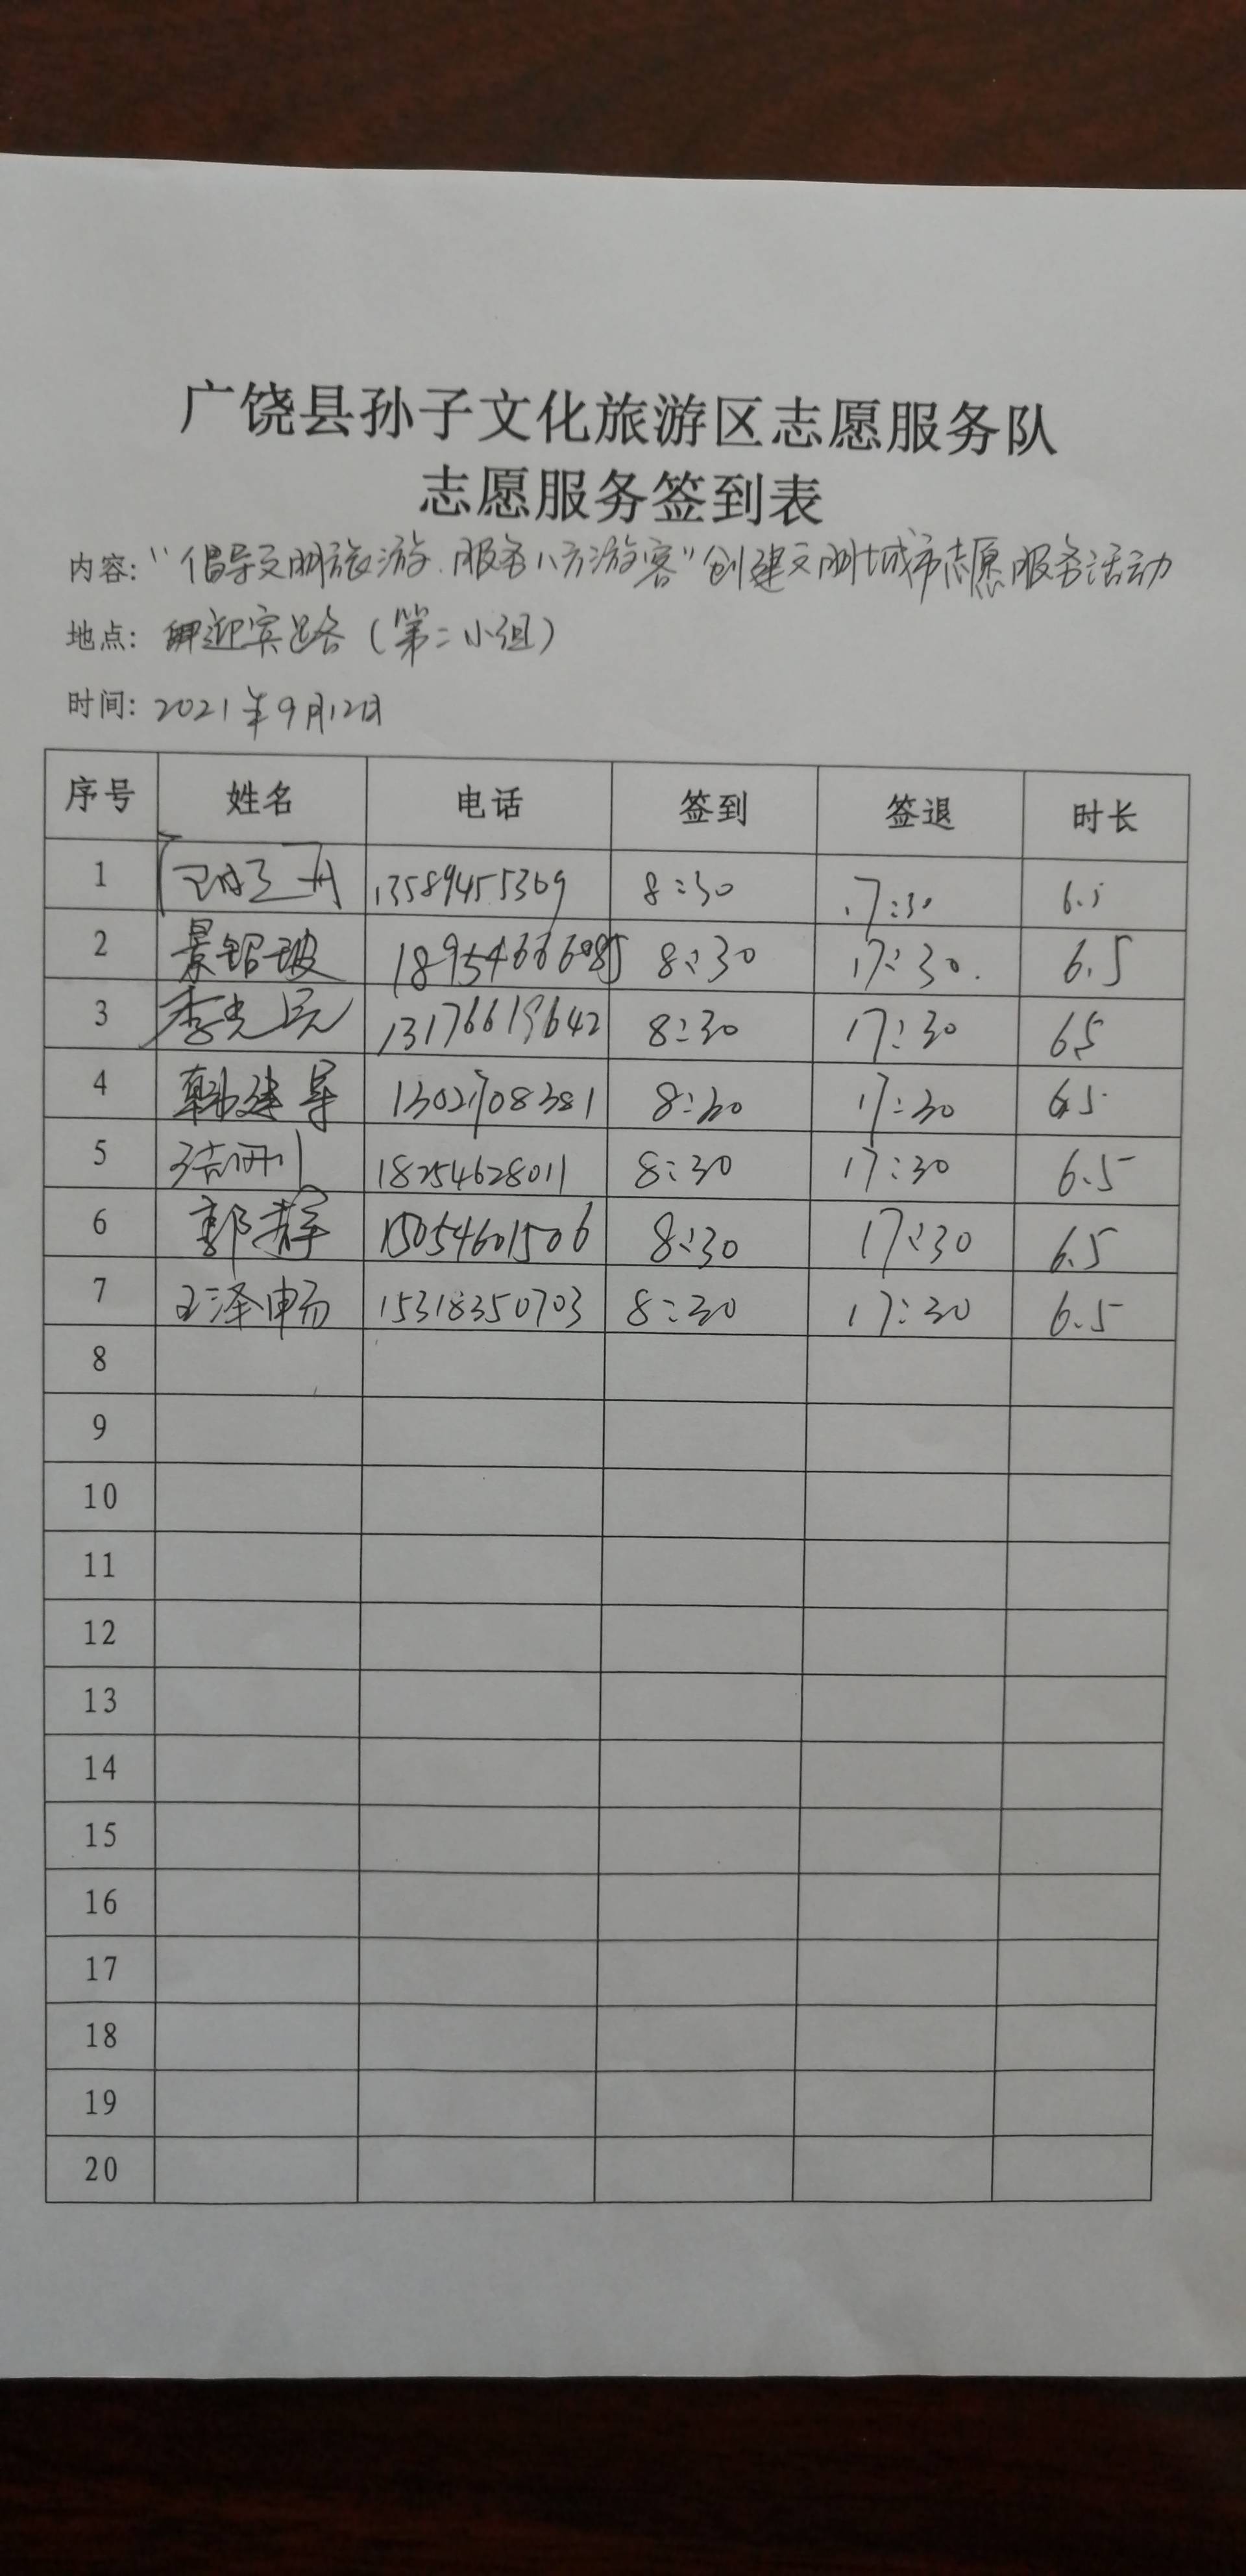 广饶县孙子文化旅游区志愿服务队
志愿服务签到表
内容:“倡导文明旅游.服务八方游客”创建文明城市志愿服务活动
地点: 迎宾路(第二小组)
时间: 2021年9月12日
序号 姓名 电话 签到 签退 时长
1 13589455369 8:30 17:30 6.5
2 景韶玻 18954666085 8:30 17:30. 6.5
3 李光民 13176619642 8:30 17:30 65
4 韩建军 8:30 17:30 6.5
5 18254628011 8:30 17:30 6.5
6 郭辉 15054601506 8:30 17:30 6.5
7 王泽畅 15318350703 8:30 17:30 6.5
8
9
10
11
12
13
14
15
16
17
18
19
20